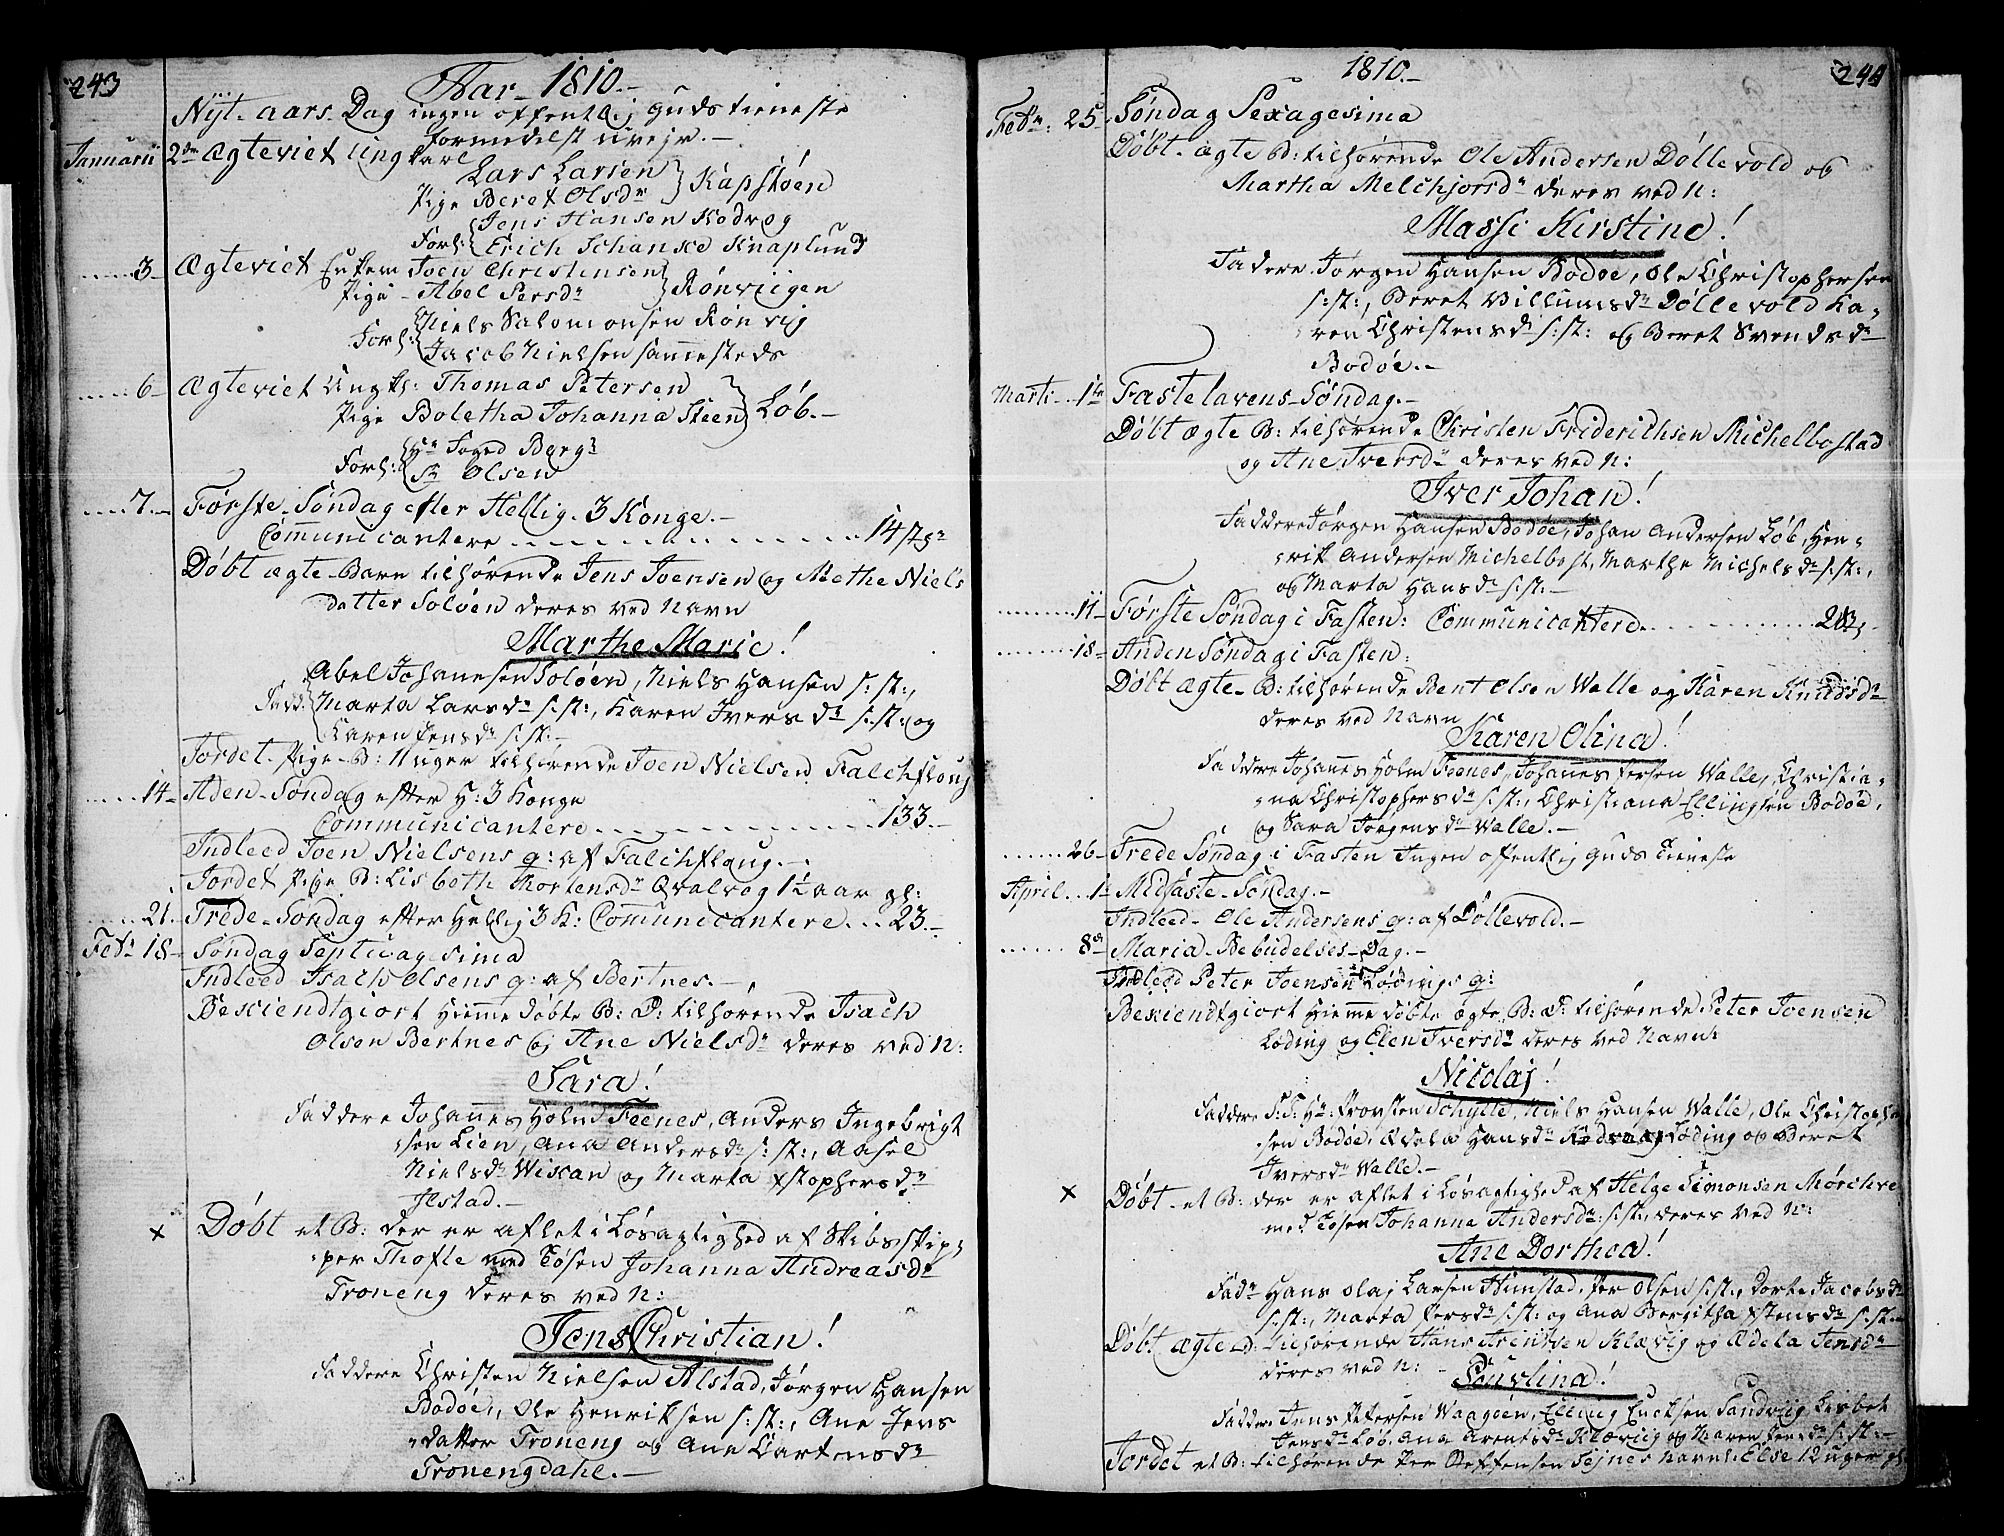 243
Aar 1810.-
Nÿt. aars. Dag ingen offentlig Guds tieneste
formedelst uvejr.-
Januarii 2den Ægteviet Ungkarl
Lars Larsen
Pige Beret Olsdr } Kapstøen
Forl: { Jens Hansen Kodvog
Erich Schanke Knaplund
3. Ægteviet Enkem Joen Christensen
Pige - Abel Persdr } Rønviigen
Forl: { Niels Salomonsen Rønvig
Jacob Nielsen sammesteds
6 Ægteviet Ungk: Thomas Petersen
Pige Boletha Johanna Steen } Løb.-
Forl: { Hr Foged Berg
Sr Olsen
7. Første Søndag efter Hellig. 3 Konge.-
Communicantere 147
Døbt ægte Barn tilhørende Jens Joensen og Methe Niels
datter Soløen deres ved Navn
Marthe Marie!
Fadd: { Abel Johannesen Soløen, Niels Hansen s:st:,
Marta Larsdr s:st:, Karen Iversdr s:st: og
Karen Jensdr s:st:-
Jordet. Pige B: 11 uger tilhørende Joen Nielsen Falchfloug
14 Aden Søndag efter H: 3 Konge
Communicantere 133.-
Indleed Joen Nielsens q: af Falchflaug.-
Jordet Pige B: Lisbeth Mortensdr Qvalvog 1½ aar gl:
21. Trede Søndag efter Hellig 3 K: Communicantere 23.-
Febr 18 Søndag Septuagesima
Indleed Isach Olsens q: af Bertnes.-
Bekiendtgiort Hiemme Døbte B: D: tilhørende Isach
Olsen Bertnes og Ane Nielsdr deres ved N:
Sara!
Faddere Johannes Holm Feenes, Anders Ingebrigt
sen Lien, Ana Andersdr s:st:, Aasel
Nielsdr Wixan og Marta Xstophersdr
Ilstad.-
x Døbt et B: der er aflet i Løsagtighed af Skibsskip
per Thofte med Tøsen Johanna Andreasdr
Troneng deres ved N:
Jens Christian!
Faddere Christen Nielsen Alstad, Jørgen Hansen
Bodøe, Ole Henriksen s:st:, Ane Jens
datter Troneng og Ane Martensdr
Tronengdahl.-
244
1810.-
Febr: 25 Søndag Sexagesima
Døbt. ægte B: tilhørende Ole Andersen Døllevold og
Martha Melchjorsdr deres ved N:
Massi Kirstine!
Faddere Jørgen Hansen Bodøe, Ole Christophersen
s:st:, Beret Villumsdr Døllevold Ka
ren Christensdr s:st: og Beret Svendsdr
Bodøe.-
Marti 1te Fastelavens Søndag.-
Døbt ægte B: tilhørende Christen Friderichsen Michelbostad
og Ane Iversdr deres ved N:
Iver Johan!
Faddere Jørgen Hansen Bodøe, Johan Andersen Løb, Hen
rik Andersen Michelbost, Marthe Michelsdr s:st:,
og Marta Hansdr s:st:-
11 Første Søndag i Fasten: Communicantere
18 Anden Søndag i Fasten:
Døbt ægte B: tilhørende Bent Olsen Walle og Karen Knudsdr
deres ved Navn
Karen Olina!
Faddere Johannes Holm Feenes, Johannes Persen Walle, Christia
na Christophersdr s:st:, Christiana Ellingsen Bodøe,
og Sara Jørgensdr Walle.-
26 Trede Søndag i Fasten Ingen offentlig Guds tieneste
April 1 Midfaste Søndag.-
Indleed Ole Andersens q: af Døllevold.-
8de Maria Bebudelses Dag.-
Indleed Peter Joensen Lødings q:
Bekiendtgiort Hiemme døbte ægte B: D: tilhørende Peter Joensen
Løding og Elen Iversdr deres ved Navn:
Nicolaj!
Faddere S:T: Hr: Provsten Schytte, Niels Hansen Walle, Ole Christopher
sen Bodøe, Adela Hansdr Løding og Beret
Iversdr Walle.-
x Døbt et B: der er aflet i Løsagtighed af Helge Simonsen Mørchve
med Tøsen Johanna Andersdr: s:st:, deres ved N:
Ane Dorthea!
Fadr Hans Olaj Larsen Hunstad, Per Olsen s:st:, Dorte Jacobsdr
s:st:, Marta Persdr s:st: og Ana Bergitha Xstensdr s:st:
Døbt ægte B: tilhørende Hans Arentsen Klævig og Ædela Jensdr
deres ved N: -
Poulina!
Faddere Jens Petersen Waagøen, Elling Erichsen Sandviig Lisbet
Jensdr Løb, Ana Arentsdr Klæviig og Maren Persdr s:st:-
Jordet et B: tilhørende Per Steffensen Sejnes Navnl. Else 12 uger gl.